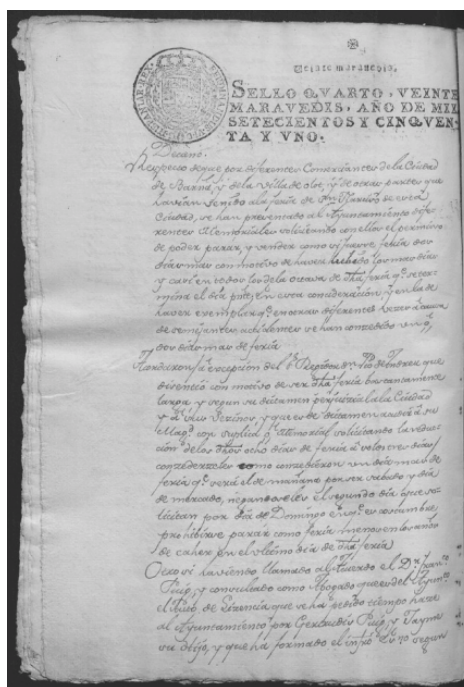 Veinte maravedis.
SELLO QVARTO, VEINTE
MARAVEDIS, AÑO DE MIL
SETECIENTOS Y CINQVEN-
TA Y VNO.
Decano.
Respecto deque por diferentes Comerciantes dela Ciudad
de y dela Villa de olot, y de otras partes que
havian venido ala feria de Sn Narciso de esta
Ciudad, se han presentado al Ayuntamiento dife
rentes Memoriales solicitando con ellos el permiso
de poder parar, y vender como si fuesse feria dos
dias mas con motivo de haver llovido los mas dias
y casi en todos los dela octava de dha feria qe se ter
mina el dia pnte, en esta consideracion y en la de
haver exemplar qe en otras diferentes vezes a causa
de semejantes accidentes se han conzedido uno, o
dos dias mas de feria
a excepcion del Sr Regidor Dn que
con motivo de ser dha feria bastantemente
larga y segun su dictamen perjudicial a la Ciudad
y a sus Vezinos y que es de dictamen acuda a su
Magd con suplica o Memorial solicitando la reduc
cion delos dhos ocho dias de feria a solos tres dias,
conzederseles como conzedieron un dia mas de
feria qe será el de mañana por ser sabado y dia
de mercado, negandoseles el segundo dia que so
licitan por dia de Domingo en qe es costumbre
prohibirse parar como feria menos en los años
de caher en el ultimo dia de dha feria
Otro si haviendo llamado al Acuerdo el Dr Franco
Puig, y consultado como Abogado que es del Ayunto
el Auto de que se ha pedido tiempo hase
al Ayuntamiento por Gertrudis Puig, y Jayme
su Hijo, y que ha formado el segun